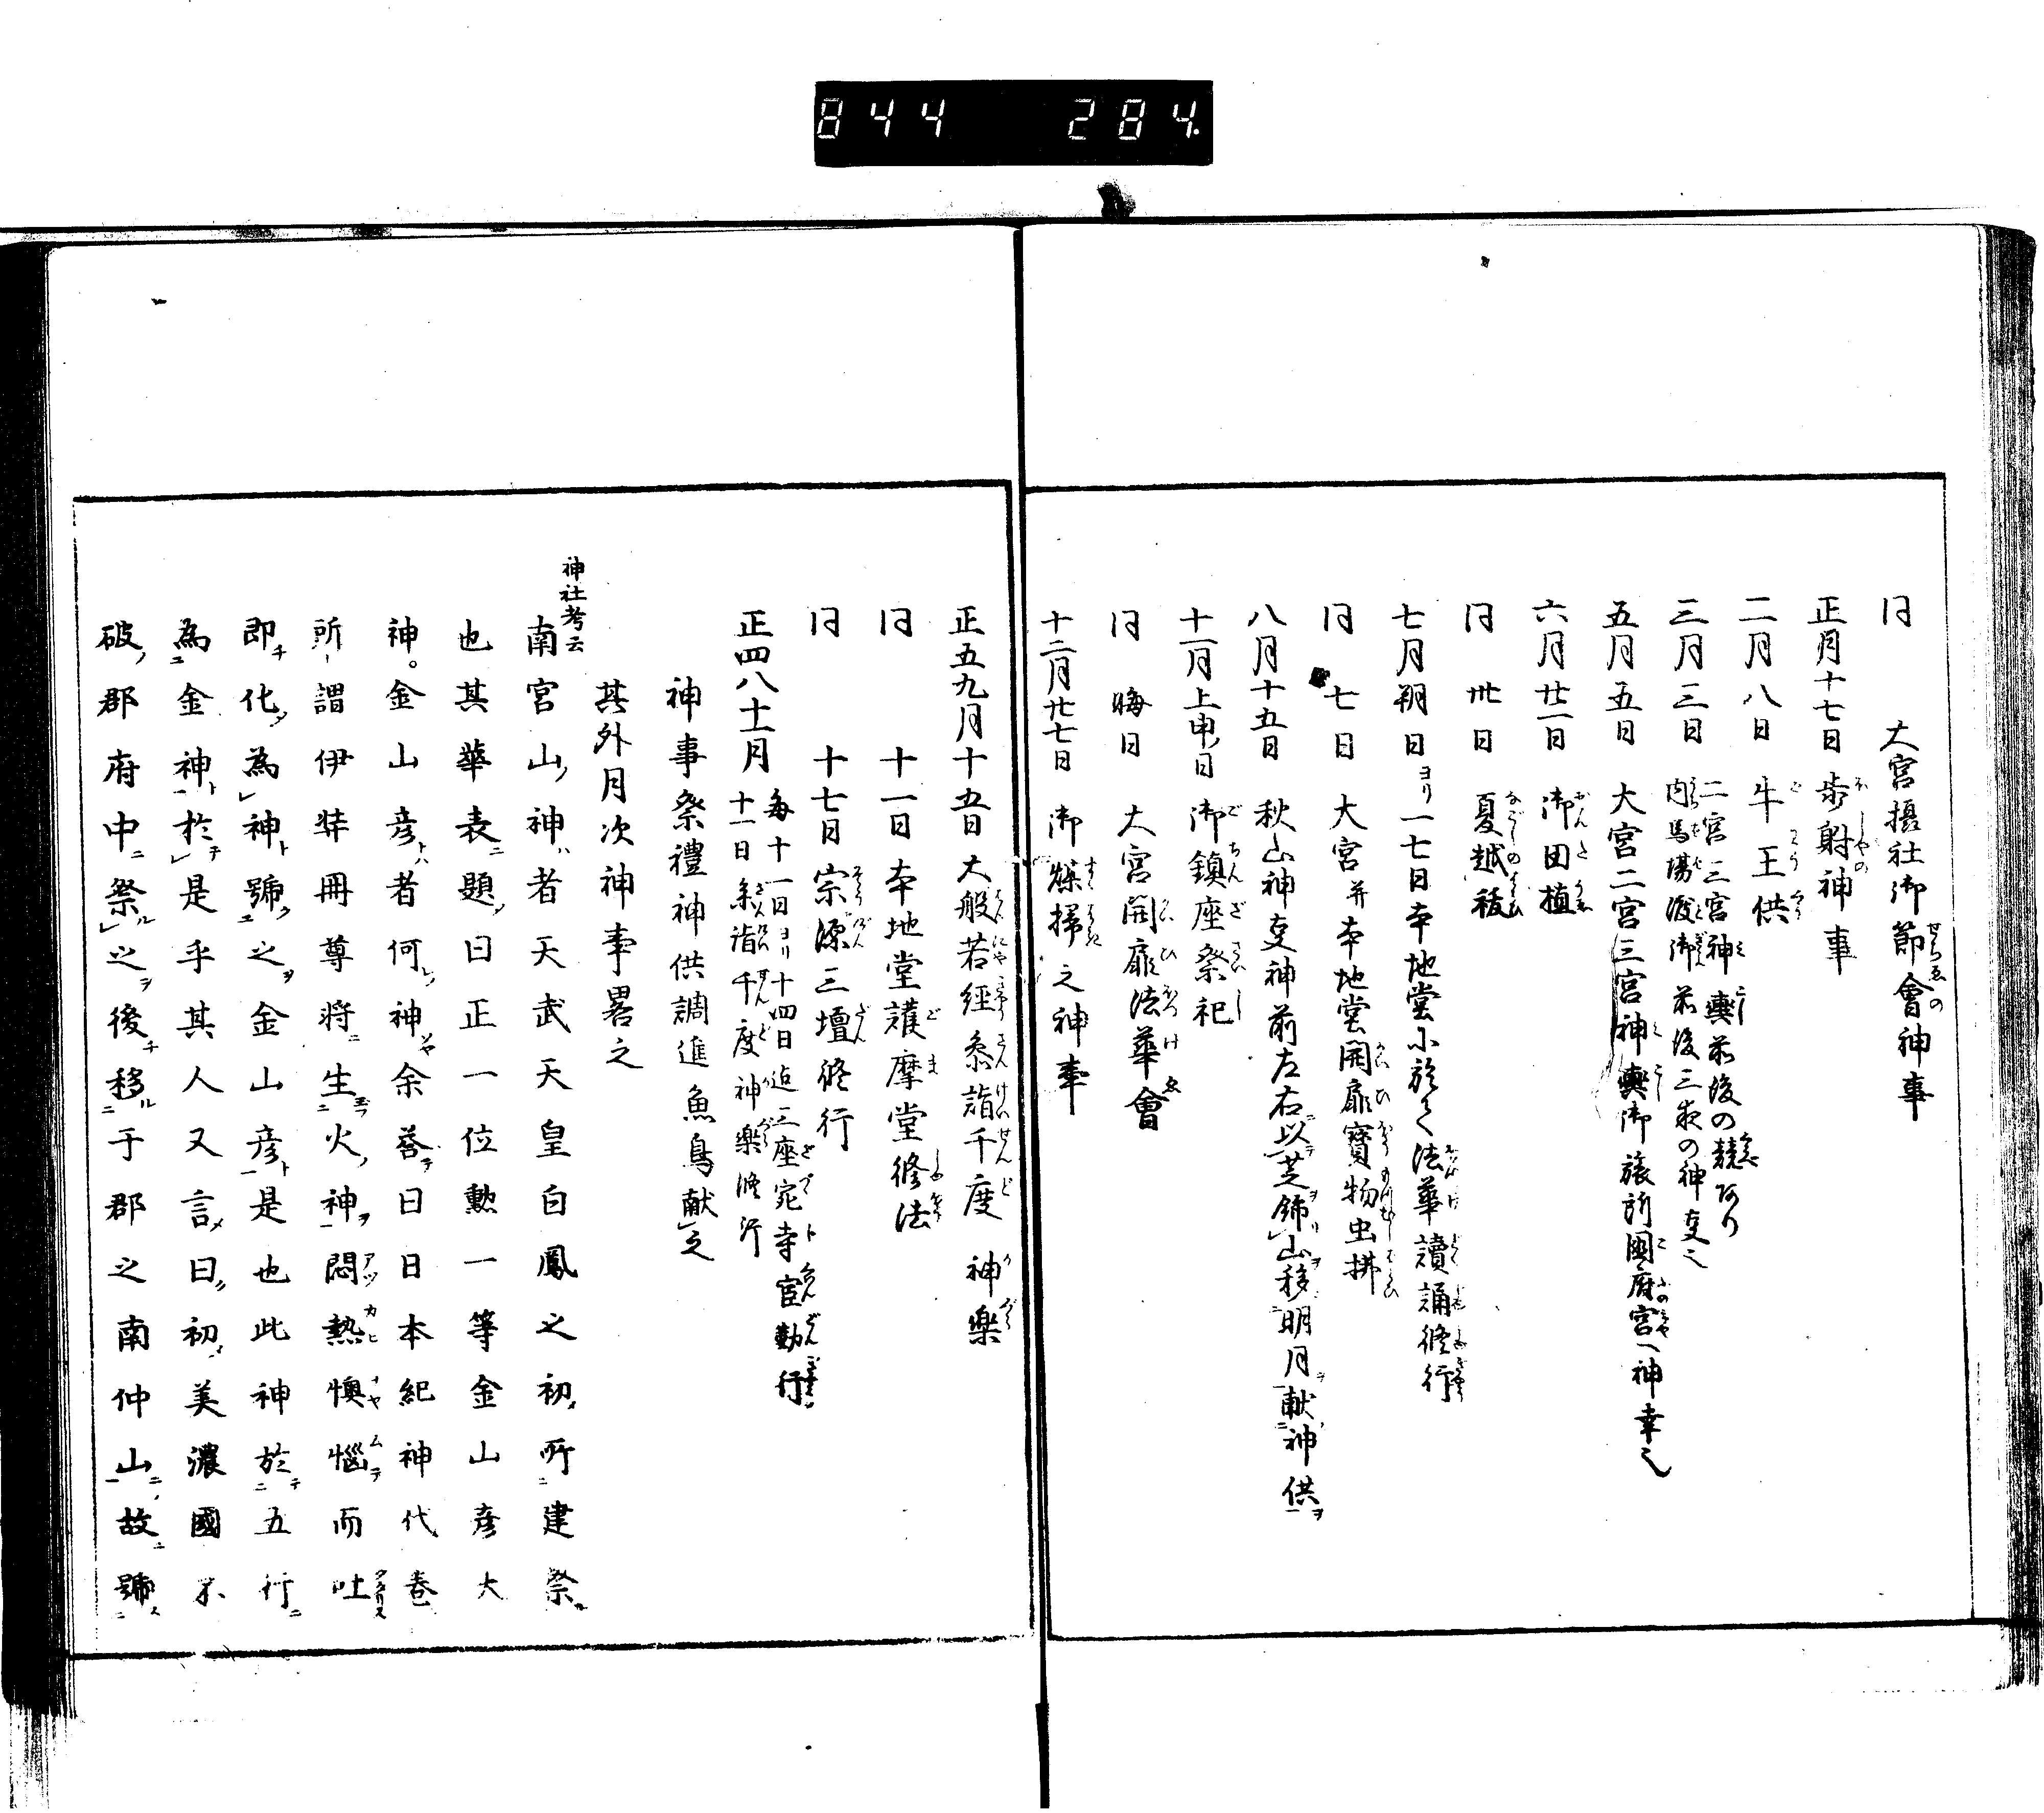 844 284.
同 大宮摂社御節會神事
正月十七日 歩射神事
二月八日 牛王供
三月三日 二宮三宮神輿前後の競あり
内馬場渡御前後三夜の神事之
五月五日 大宮二宮三宮神輿御旅所國府宮へ神幸之
六月廿一日 御田植
同 卅日 夏越祓
七月朔日ヨリ一七日本地堂小於て法華讀誦修行
同 七日 大宮并本地堂開扉寳物虫拂
八月十五日 秋山神事神前左右以芝錺山移明月献神供
十一月上申日 御鎮座祭祀
同 晦日 大宮開扉法華會
十二月廿七日 御煤掃之神事
正五九月十五日 大般若經叅詣千度 神樂
同 十一日 本地堂護摩堂修法
同 十七日 宗源三壇修行
正四八十二月 毎十一日ヨリ十四日迠三座宛寺官勤行
十一日叅詣千度神樂修行
神事祭禮神供調進魚鳥献之
其外月次神事畧之
神社考云
南宮山神者天武天皇白鳳之初所建祭
也其華表題曰正一位勲一等金山彦大
神。金山彦者何神余荅曰日本紀神代巻
所謂伊弉冊尊將生火神悶熱懊惱而吐
即化為神號之金山彦是也此神於五行
為金神於是乎其人又言曰初美濃國不
破郡府中祭之後移于郡之南仲山故號